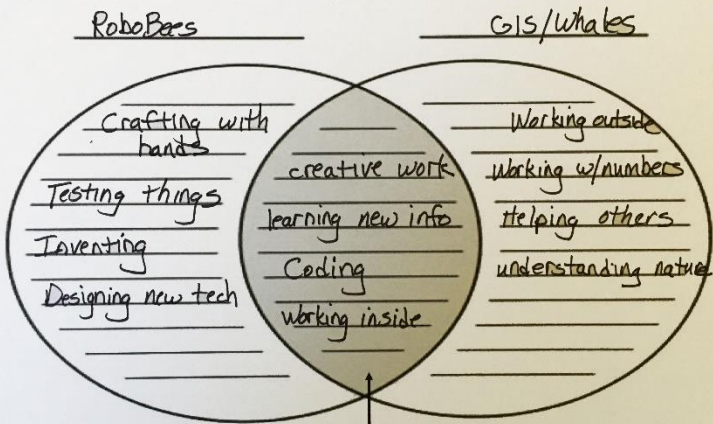 RoboBees
GIS/Whales
Crafting with
hands
Testing things
Inventing
Designing new tech
creative work
learning new info
Coding
working inside
Working outside
Working w/numbers
Helping others
understanding nature